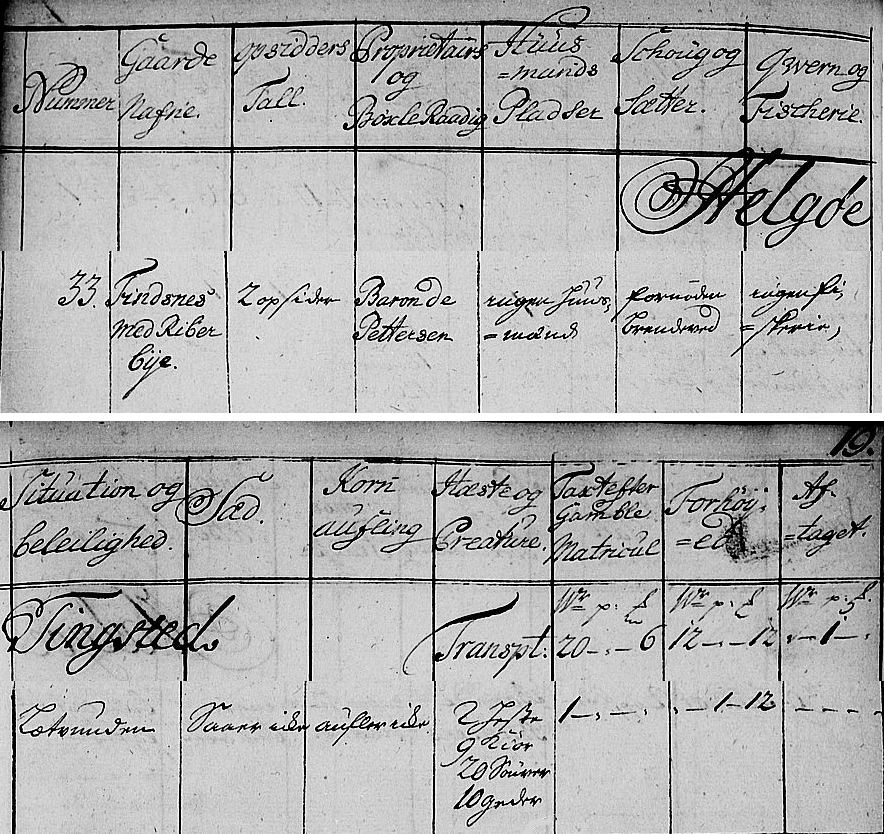 Nummer
Gaarde
Nafne.
opsidders
Tall.
Proprietairs
og
Böxle Raadig
Huus
=mands
Pladser
Schoug og
Sætter.
Qvern og
Fischerie.
Helgøe
33.
Findsnes
med Riber
bye.
2 opsider
Baron de
Pettersen
ingen Huus,
=mænd
fornöden
brendeved
ingen fi,
=skerie,
19.
Situation og
beleilighed.
Sæd.
Korn
aufling
Hæste og
Creature.
Taxt efter
Gamble
Matricul
Forhöy,
=et
Af-
=taget.
Tingsted.
Transpt.
Wr p: £
20 – „ – 6
Wr p: £
12 – „ – 12
Wr p: £.
„ – 1 – „
Letvunden
Saaer icke
aufler icke
2 Heste
9 Kiör
20 Souver
10 geder
1 – „ – „
„ – 1 – 12